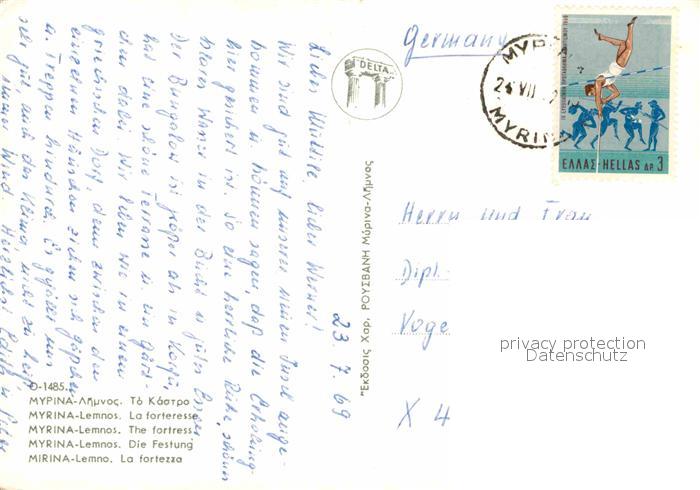 Germany
DELTA
ΜΥΡΙΝΑ
24 VII
MYRINA
ΕΛΛΑΣ-HELLAS ΔΡ. 3
23.7.69
Wir sind gut auf unserer neuen Insel ange-
kommen u. können sagen, daß die Erholung
hier gesichert ist. So eine herrliche Ruhe, schönes
klares Wasser in der Bucht u. gutes Essen.
Der Bungalow ist größer als in Korfu,
hat eine schöne Terrasse u. ein Gärt-
chen dabei. Wir leben wie in einem
griechischen Dorf, denn zwischen den
einzelnen Häuschen ziehen sich Gäßchen
u. Treppen hindurch. Es gefällt uns
sehr gut, und das Klima, nicht zu heiß,
immer Wind. Herzlichst
"Εκδοσις Χαρ. ΡΟΥΣΒΑΝΗ Μύρινα-Λῆμνος
Herrn und Frau
Dipl.
Voge
X 4
privacy protection
Datenschutz
D-1485.
ΜΥΡΙΝΑ-Λῆμνος. Τὸ Κάστρο
MYRINA-Lemnos. La forteresse
MYRINA-Lemnos. The fortress
MYRINA-Lemnos. Die Festung
MIRINA-Lemno. La fortezza